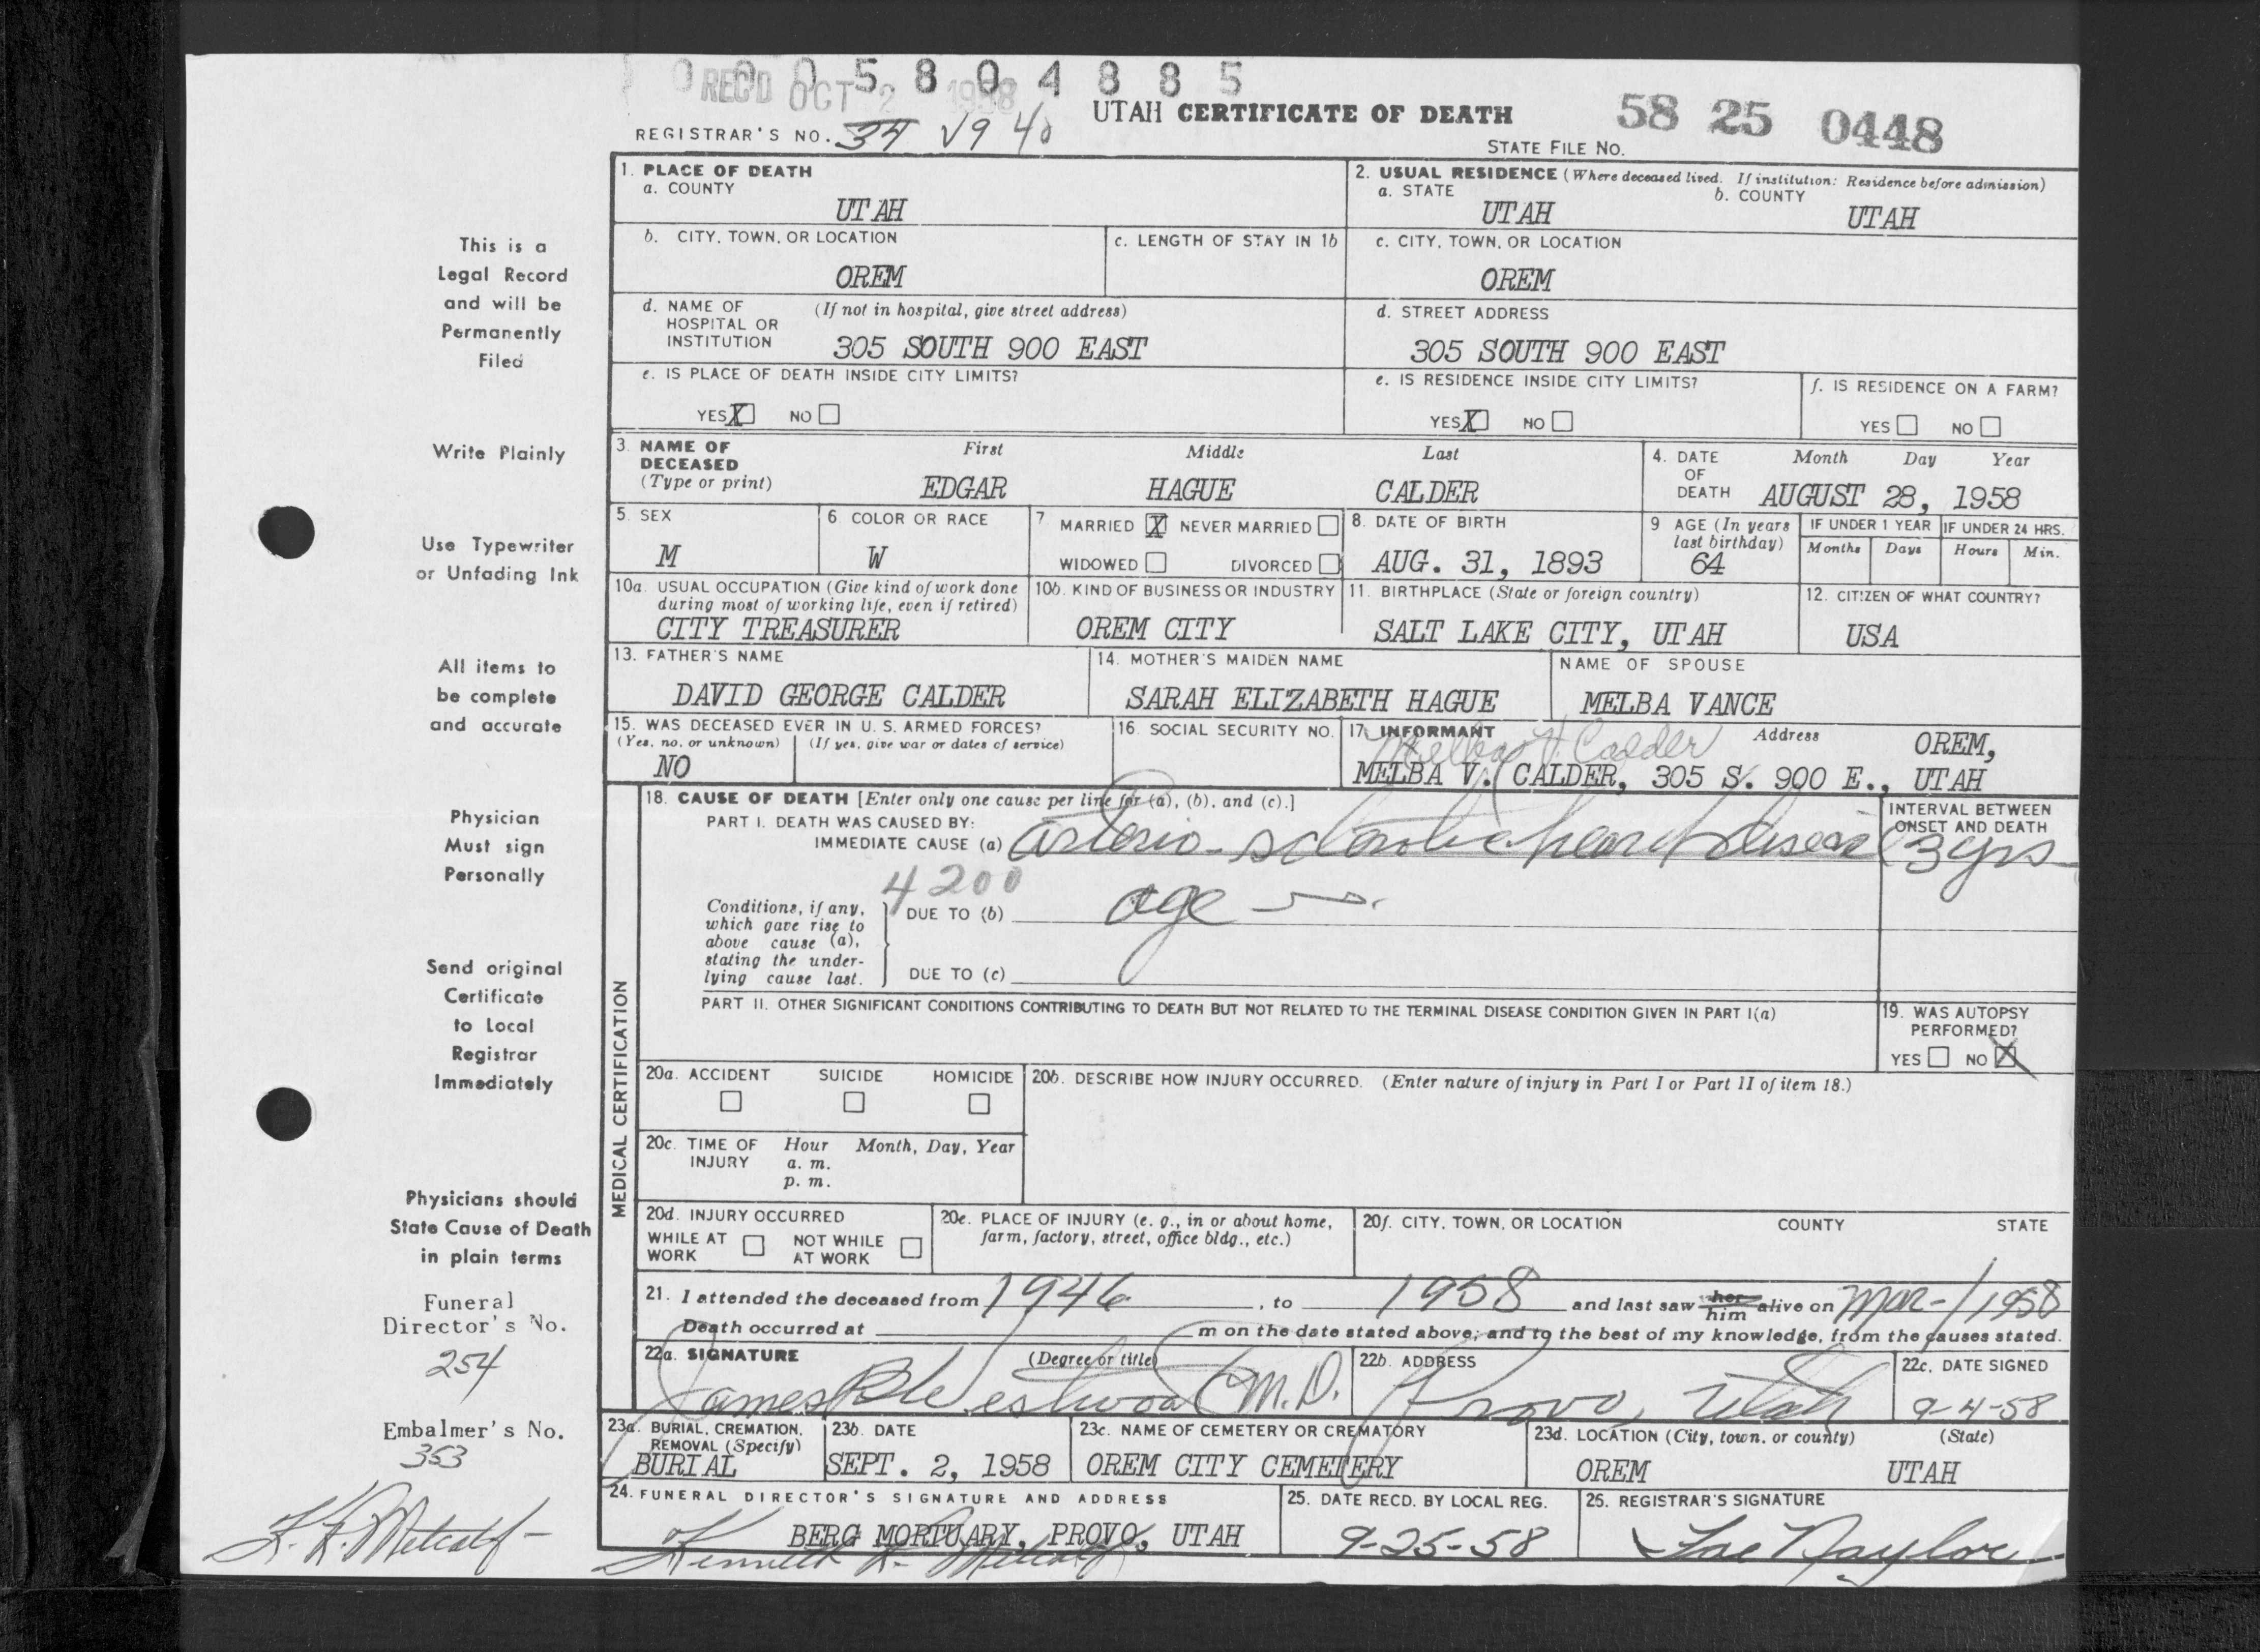 0 0 0 5 8 0 4 8 8 5
REC'D OCT 2 1958
UTAH CERTIFICATE OF DEATH
58 25 0448
REGISTRAR'S NO. 34 √9 40
STATE FILE NO.
This is a
Legal Record
and will be
Permanently
Filed
Write Plainly
Use Typewriter
or Unfading Ink
All items to
be complete
and accurate
Physician
Must sign
Personally
Send original
Certificate
to Local
Registrar
Immediately
Physicians should
State Cause of Death
in plain terms
Funeral
Director's No.
254
Embalmer's No.
353
K. K. Metcalf
1. PLACE OF DEATH
a. COUNTY
UTAH
2. USUAL RESIDENCE (Where deceased lived. If institution: Residence before admission)
a. STATE b. COUNTY
UTAH UTAH
b. CITY, TOWN, OR LOCATION c. LENGTH OF STAY IN 1b
OREM
c. CITY, TOWN, OR LOCATION
OREM
d. NAME OF (If not in hospital, give street address)
HOSPITAL OR
INSTITUTION 305 SOUTH 900 EAST
d. STREET ADDRESS
305 SOUTH 900 EAST
e. IS PLACE OF DEATH INSIDE CITY LIMITS?
YES X NO
e. IS RESIDENCE INSIDE CITY LIMITS?
YES X NO
f. IS RESIDENCE ON A FARM?
YES NO
3. NAME OF First Middle Last
DECEASED
(Type or print) EDGAR HAGUE CALDER
4. DATE Month Day Year
OF
DEATH AUGUST 28, 1958
5. SEX
M
6. COLOR OR RACE
W
7. MARRIED X NEVER MARRIED
WIDOWED DIVORCED
8. DATE OF BIRTH
AUG. 31, 1893
9. AGE (In years
last birthday)
64
IF UNDER 1 YEAR IF UNDER 24 HRS.
Months Days Hours Min.
10a. USUAL OCCUPATION (Give kind of work done
during most of working life, even if retired)
CITY TREASURER
10b. KIND OF BUSINESS OR INDUSTRY
OREM CITY
11. BIRTHPLACE (State or foreign country)
SALT LAKE CITY, UTAH
12. CITIZEN OF WHAT COUNTRY?
USA
13. FATHER'S NAME
DAVID GEORGE CALDER
14. MOTHER'S MAIDEN NAME
SARAH ELIZABETH HAGUE
NAME OF SPOUSE
MELBA VANCE
15. WAS DECEASED EVER IN U. S. ARMED FORCES?
(Yes, no, or unknown) (If yes, give war or dates of service)
NO
16. SOCIAL SECURITY NO.
17. INFORMANT Address
Melba V. Calder
OREM,
MELBA V. CALDER, 305 S. 900 E., UTAH
MEDICAL CERTIFICATION
18. CAUSE OF DEATH [Enter only one cause per line for (a), (b), and (c).]
PART I. DEATH WAS CAUSED BY:
IMMEDIATE CAUSE (a) arterio-sclerotic heart disease
INTERVAL BETWEEN
ONSET AND DEATH
3 yrs
4200
Conditions, if any,
which gave rise to
above cause (a),
stating the under-
lying cause last.
DUE TO (b) age
DUE TO (c)
PART II. OTHER SIGNIFICANT CONDITIONS CONTRIBUTING TO DEATH BUT NOT RELATED TO THE TERMINAL DISEASE CONDITION GIVEN IN PART I(a)
19. WAS AUTOPSY
PERFORMED?
YES NO X
20a. ACCIDENT SUICIDE HOMICIDE
20b. DESCRIBE HOW INJURY OCCURRED. (Enter nature of injury in Part I or Part II of item 18.)
20c. TIME OF Hour Month, Day, Year
INJURY a. m.
p. m.
20d. INJURY OCCURRED
WHILE AT NOT WHILE
WORK AT WORK
20e. PLACE OF INJURY (e. g., in or about home,
farm, factory, street, office bldg., etc.)
20f. CITY, TOWN, OR LOCATION COUNTY STATE
21. I attended the deceased from 1946, to 1958 and last saw her him alive on Mar-1 1958
Death occurred at m on the date stated above; and to the best of my knowledge, from the causes stated.
22a. SIGNATURE (Degree or title)
James R Westwood M.D.
22b. ADDRESS
Provo, Utah
22c. DATE SIGNED
9-4-58
23a. BURIAL, CREMATION,
REMOVAL (Specify)
BURIAL
23b. DATE
SEPT. 2, 1958
23c. NAME OF CEMETERY OR CREMATORY
OREM CITY CEMETERY
23d. LOCATION (City, town, or county) (State)
OREM UTAH
24. FUNERAL DIRECTOR'S SIGNATURE AND ADDRESS
BERG MORTUARY, PROVO, UTAH
Kenneth K. Metcalf
25. DATE RECD. BY LOCAL REG.
9-25-58
25. REGISTRAR'S SIGNATURE
Naylor